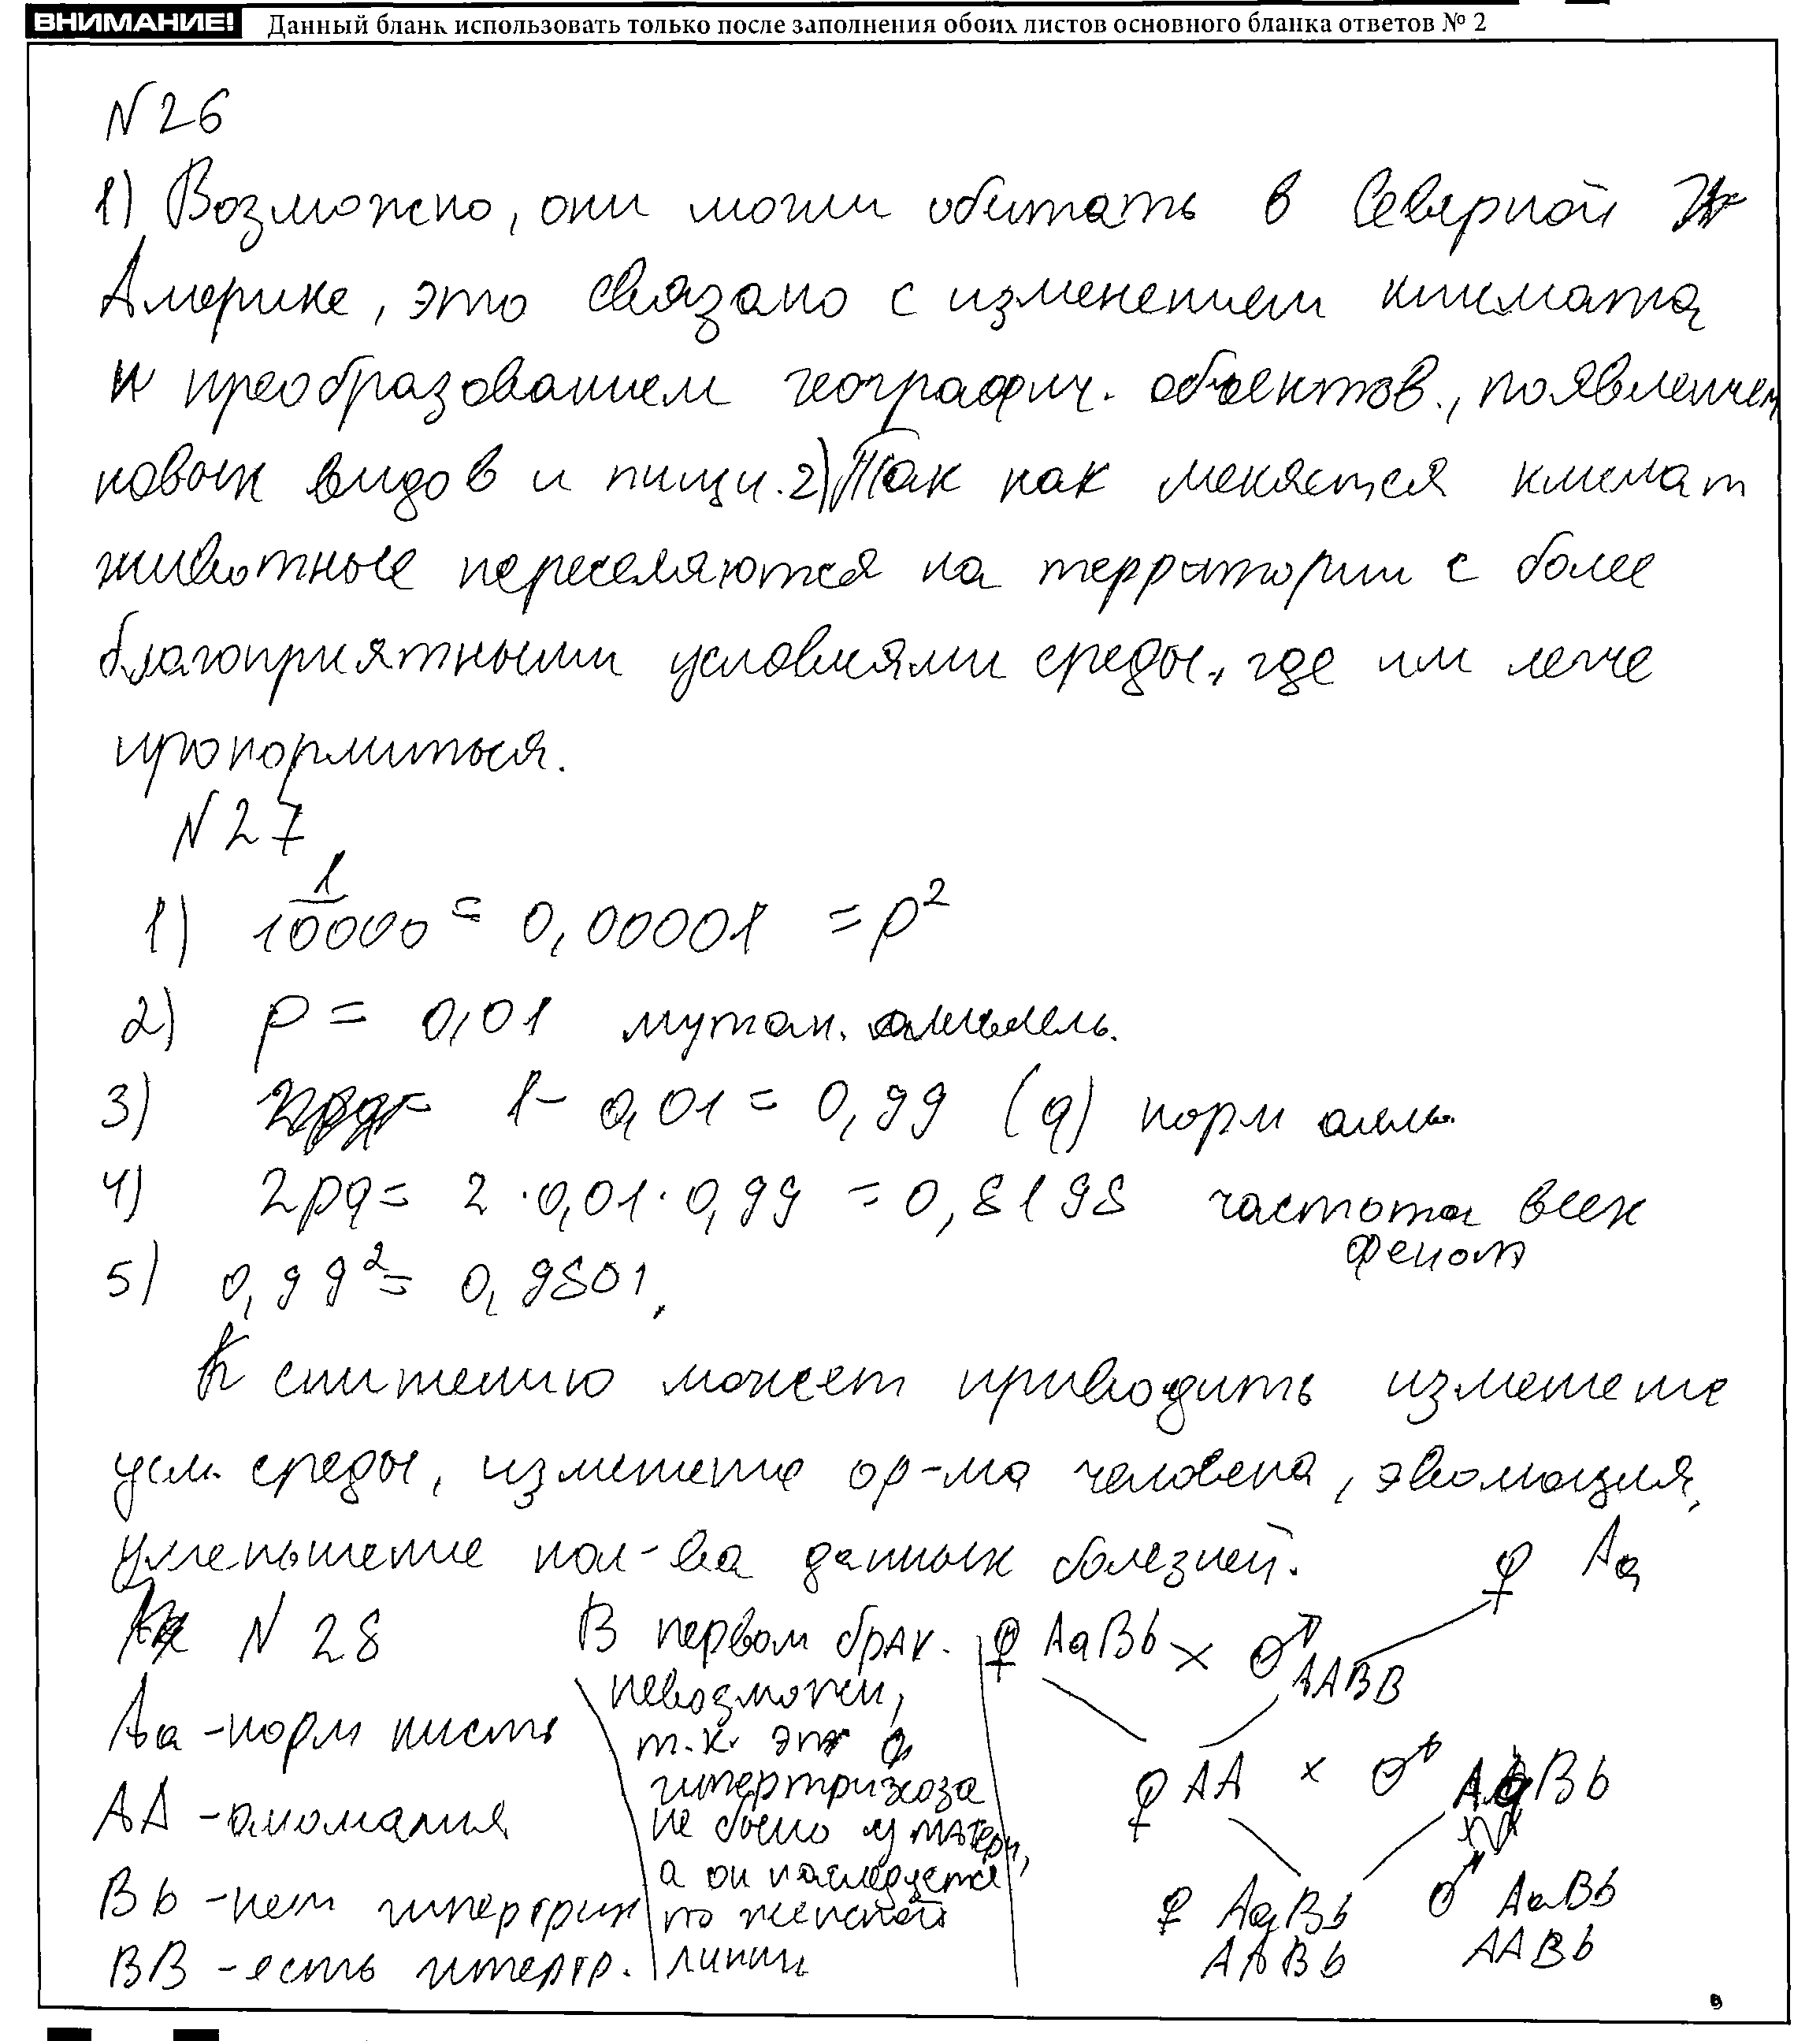 ВНИМАНИЕ! Данный бланк использовать только после заполнения обоих листов основного бланка ответов № 2
N 26
1) Возможно, они могли обитать в Северной
Америке, это связано с изменением климата
и преобразованием географич. объектов, появлением
новых видов и пищи. 2) Так как меняется климат
животные переселяются на территории с более
благоприятными условиями среды, где им легче
прокормиться.
N 27
1) 1/10000 = 0,00001 = p²
2) p = 0,01 мутан. аллель.
3) 1 - 0,01 = 0,99 (q) норм аллль.
4) 2pq = 2 · 0,01 · 0,99 = 0,8198 частота всех
феном
5) 0,99² = 0,9801.
К снижению может приводить изменение
усл. среды, изменение ор-ма человека, эволюция,
уменьшение кол-ва данных болезней.
N 28
Aa - норм кисть
AA - аномалия
Bb - нет гипертрих
BB - есть гипертр.
В первом брак.
невозможен,
т.к. эт
гипертрихоза
не было у матери,
а он наследуется
по женской
линии
♀ Aa
♀ AaBb × ♂ AABB
♀ AA × ♂ AaBb
♀ AaBb ♂ AaBb
AABb AABb